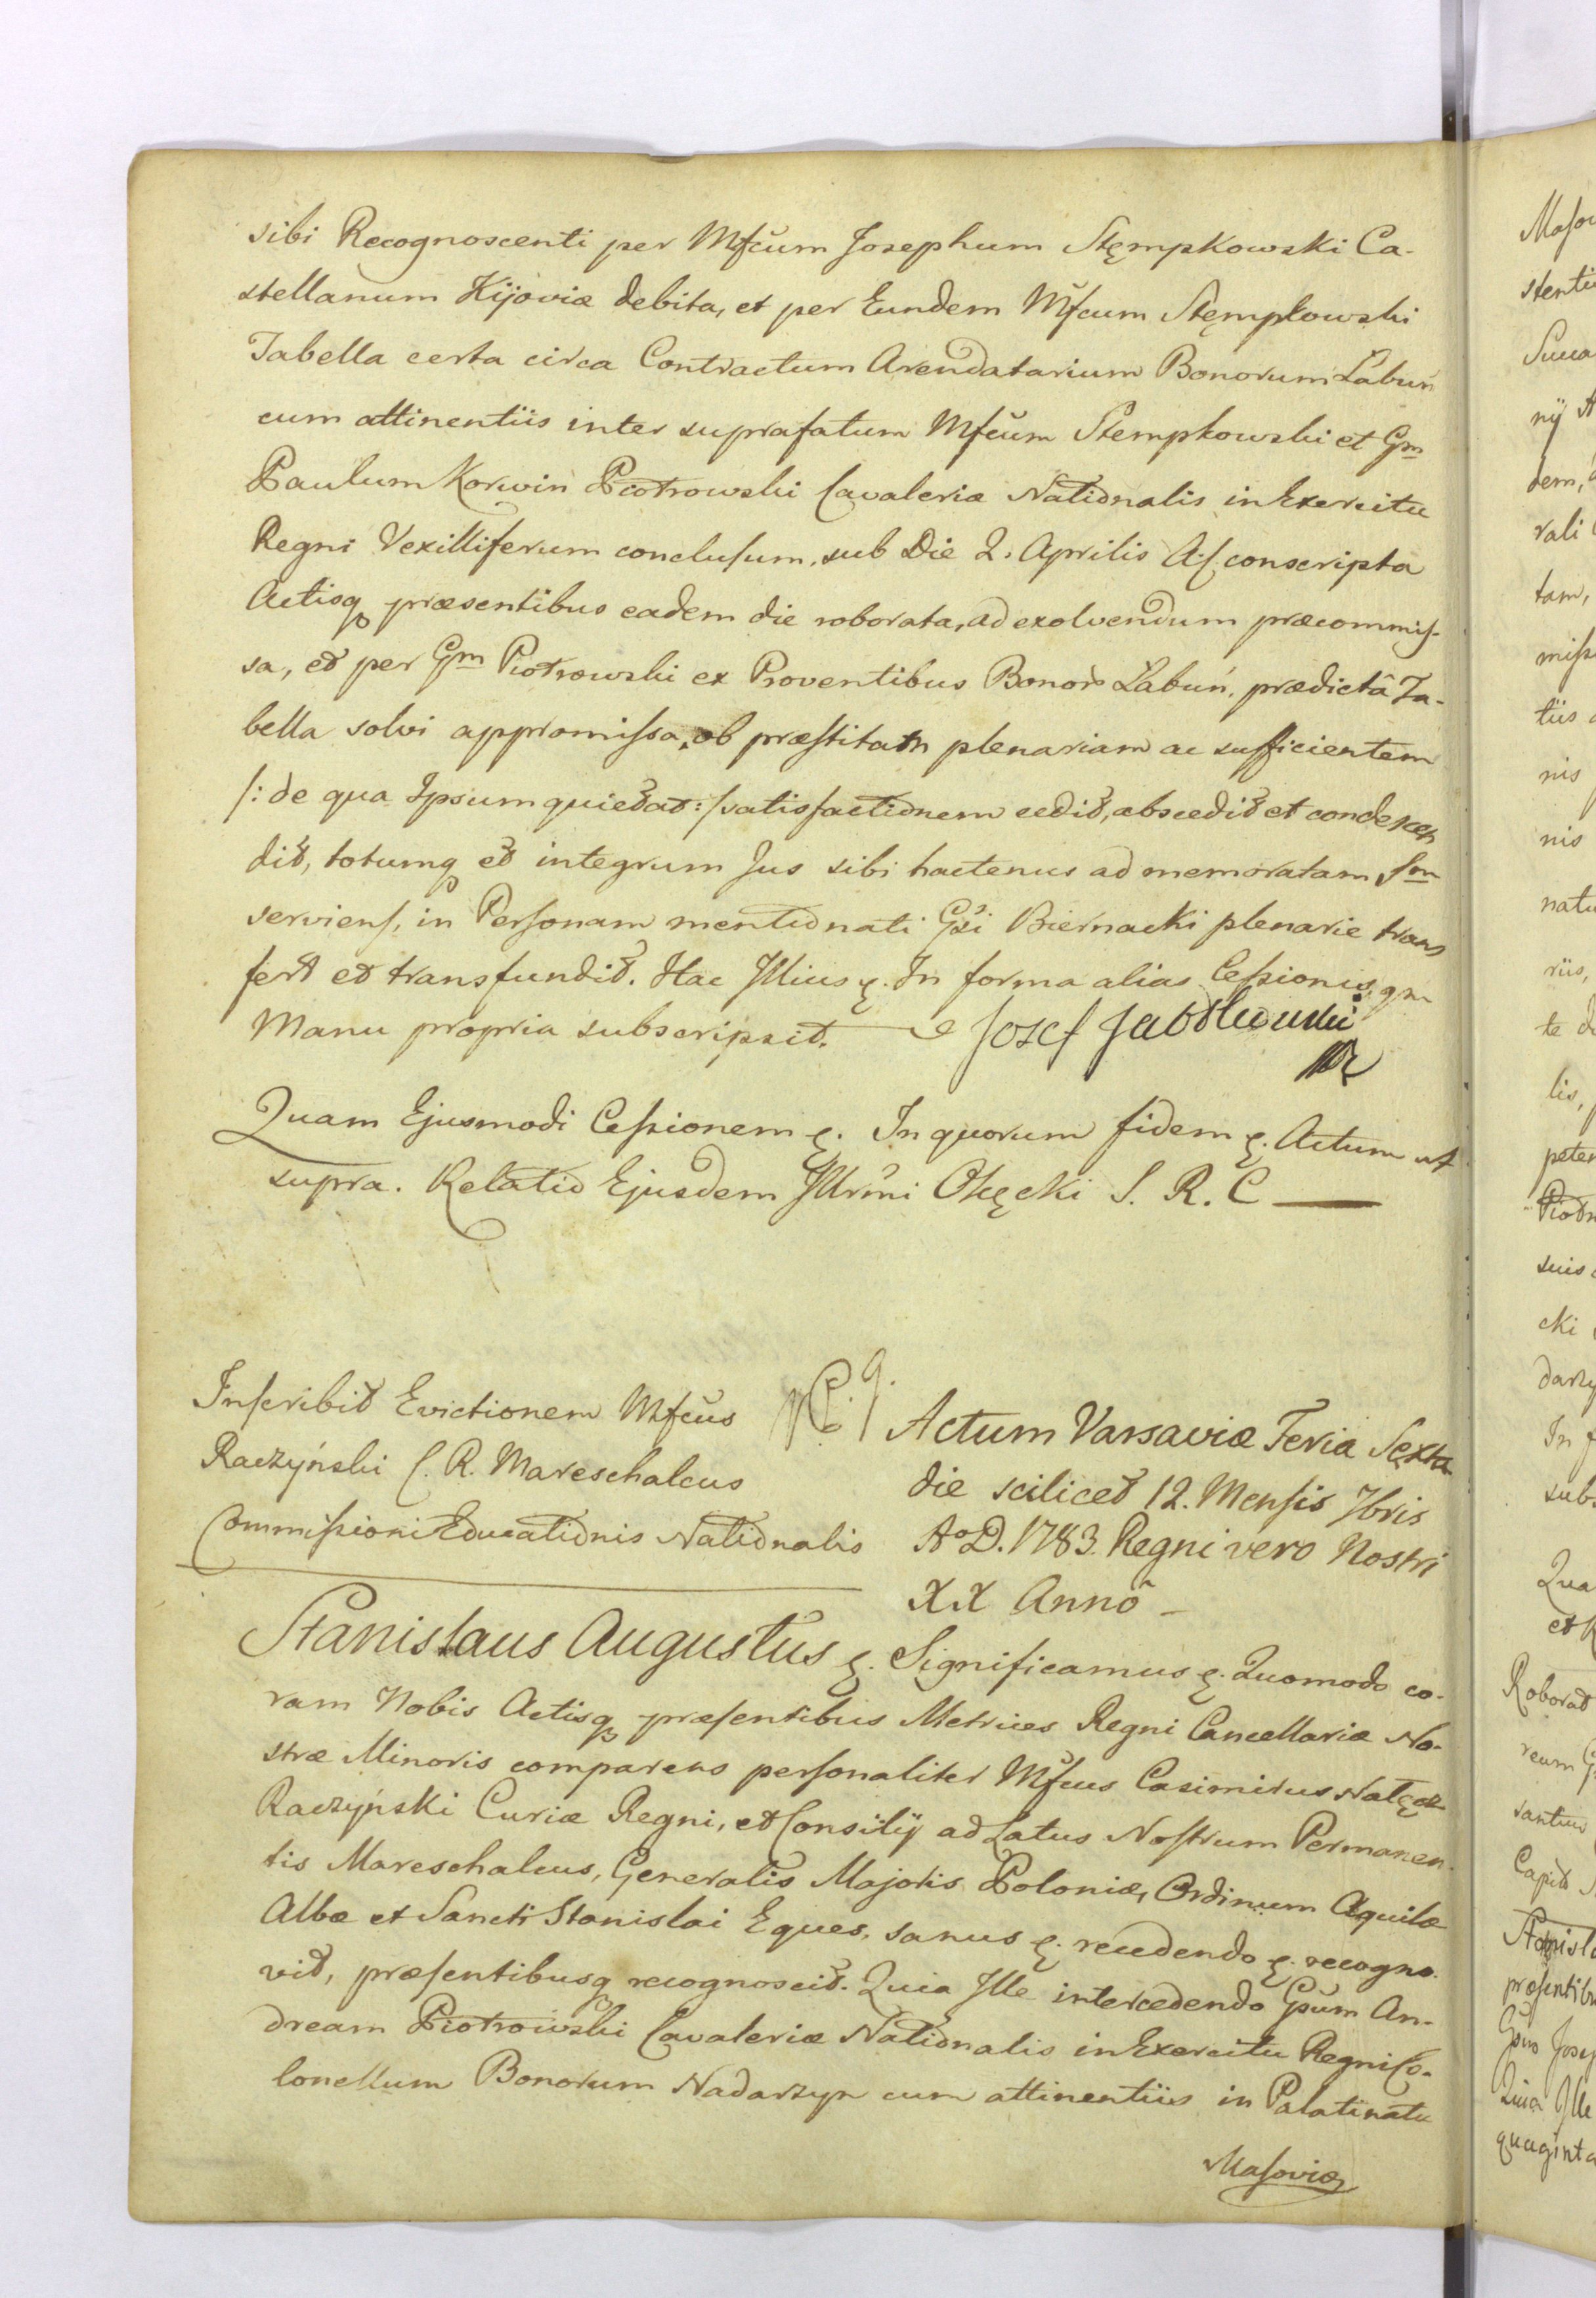 sibi Recognoscenti per Mfcum Josephum Stępkowski Ca-
stellanum Kijoviæ debita, et per Eundem Mfcum Stęmpkowski
Tabella certa circa Contractum Arendatarium Bonorum Łabuń
cum attinentiis inter suprafatum Mfcum Stempkowski et Gm
Paulum Korwin Piotrowski Cavaleriæ Nationalis in Exercitu
Regni Vexilliferum conclusum, sub Die 2. Aprilis A. conscripta
Actisq præsentibus eadem die roborata, ad exolvendum præcommis-
sa, et per Gm Piotrowski ex Proventibus Bonor Łabuń, prædictâ Ta-
bella solvi appromissa, ob præstitam plenariam ac sufficientem
/: de qua Ipsum quietat :/ satisfactionem cedit, abscedit et condescen
dit, totumq et integrum Jus sibi hactenus ad memoratam Sm
serviens, in Personam mentionati Gsi Biernacki plenarie trans
fert et transfundit. Hac Illius &. In forma alias Cessionis, qm
Manu propria subscripsit. Josef Jabłonowski
Quam Ejusmodi Cessionem &. In quorum fidem &. Actum ut
supra. Relatio Ejusdem Illrmi Okęcki S. R. C
Inscribit Evictionem Mfcus
Raczyński C. R. Mareschalcus
Commissioni Educationis Nationalis
Actum Varsaviæ Feria Sexta
die scilicet 12. Mensis 7bris
Ao D. 1783. Regni vero Nostri
XX Anno
Stanislaus Augustus &. Significamus &. Quomodo co-
ram Nobis Actisq præsentibus Metrices Regni Cancellariæ No-
stræ Minoris comparens personaliter Mfcus Casimirus Nałęcz
Raczyński Curiæ Regni, et Consilij ad Latus Nostrum Permanen-
tis Mareschalcus, Generalis Majoris Poloniæ, Ordinum Aquilæ
Albæ et Sancti Stanislai Eques, sanus &. recedendo &. recogno-
vit, præsentibusq recognoscit. Quia Ille intercedendo Gsum An-
dream Piotrowski Cavaleriæ Nationalis in Exercitu Regni Co-
lonellum Bonorum Nadarzyn cum attinentiis in Palatinatu
Masoviæ